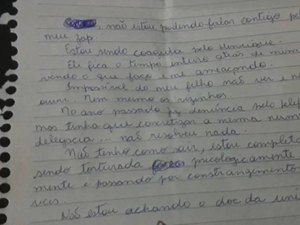 , não estou podendo falar contigo p
meu zap.
Estou sendo coagida pelo Henrique.
Ele fica o tempo inteiro atrás de mim
vendo o que faço e me ameaçando.
Impossível do meu filho não ver e n
ouvir. Nem mesmo os vizinhos.
No ano passado fiz denúncia pelo tele
mas tinha que concretizar a mesma numa
delegacia... não resolveu nada.
Não tenho como sair, estou complet
sendo torturada psicologicamente
mente e passando por constrangimento
Não estou achando o doc da uni